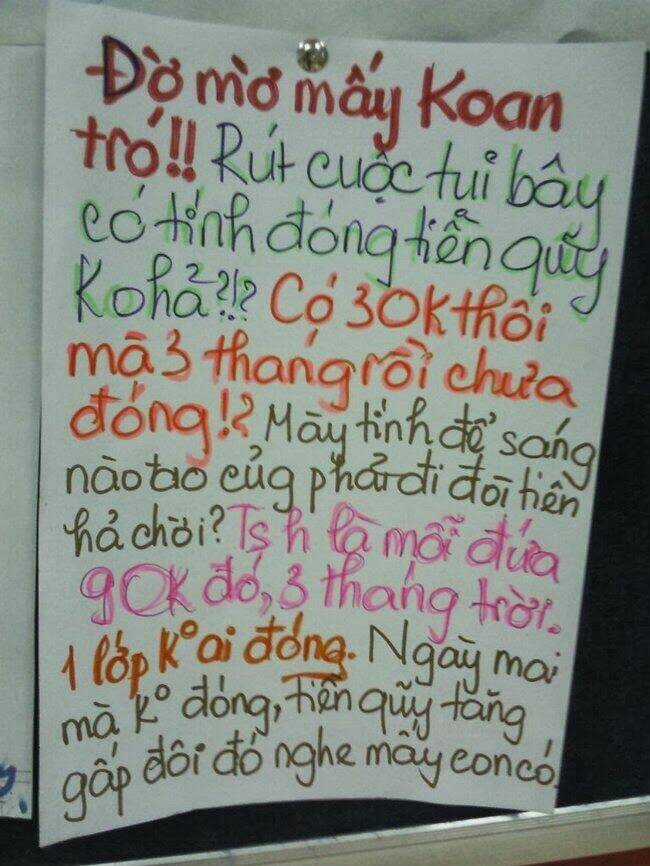 Đờ mờ mấy Koan
tró!! Rút cuộc tụi bây
có tính đóng tiền quỹ
Ko hả?!? Có 30K thôi
mà 3 tháng rồi chưa
đóng!? Mày tính để sáng
nào tao củg phải đi đòi tiền
hả chời? Ts h là mỗi đứa
90K đó, 3 tháng trời.
1 lớp K° ai đóng. Ngày mai
mà K° đóng, tiền quỹ tăng
gấp đôi đó nghe mấy con có.